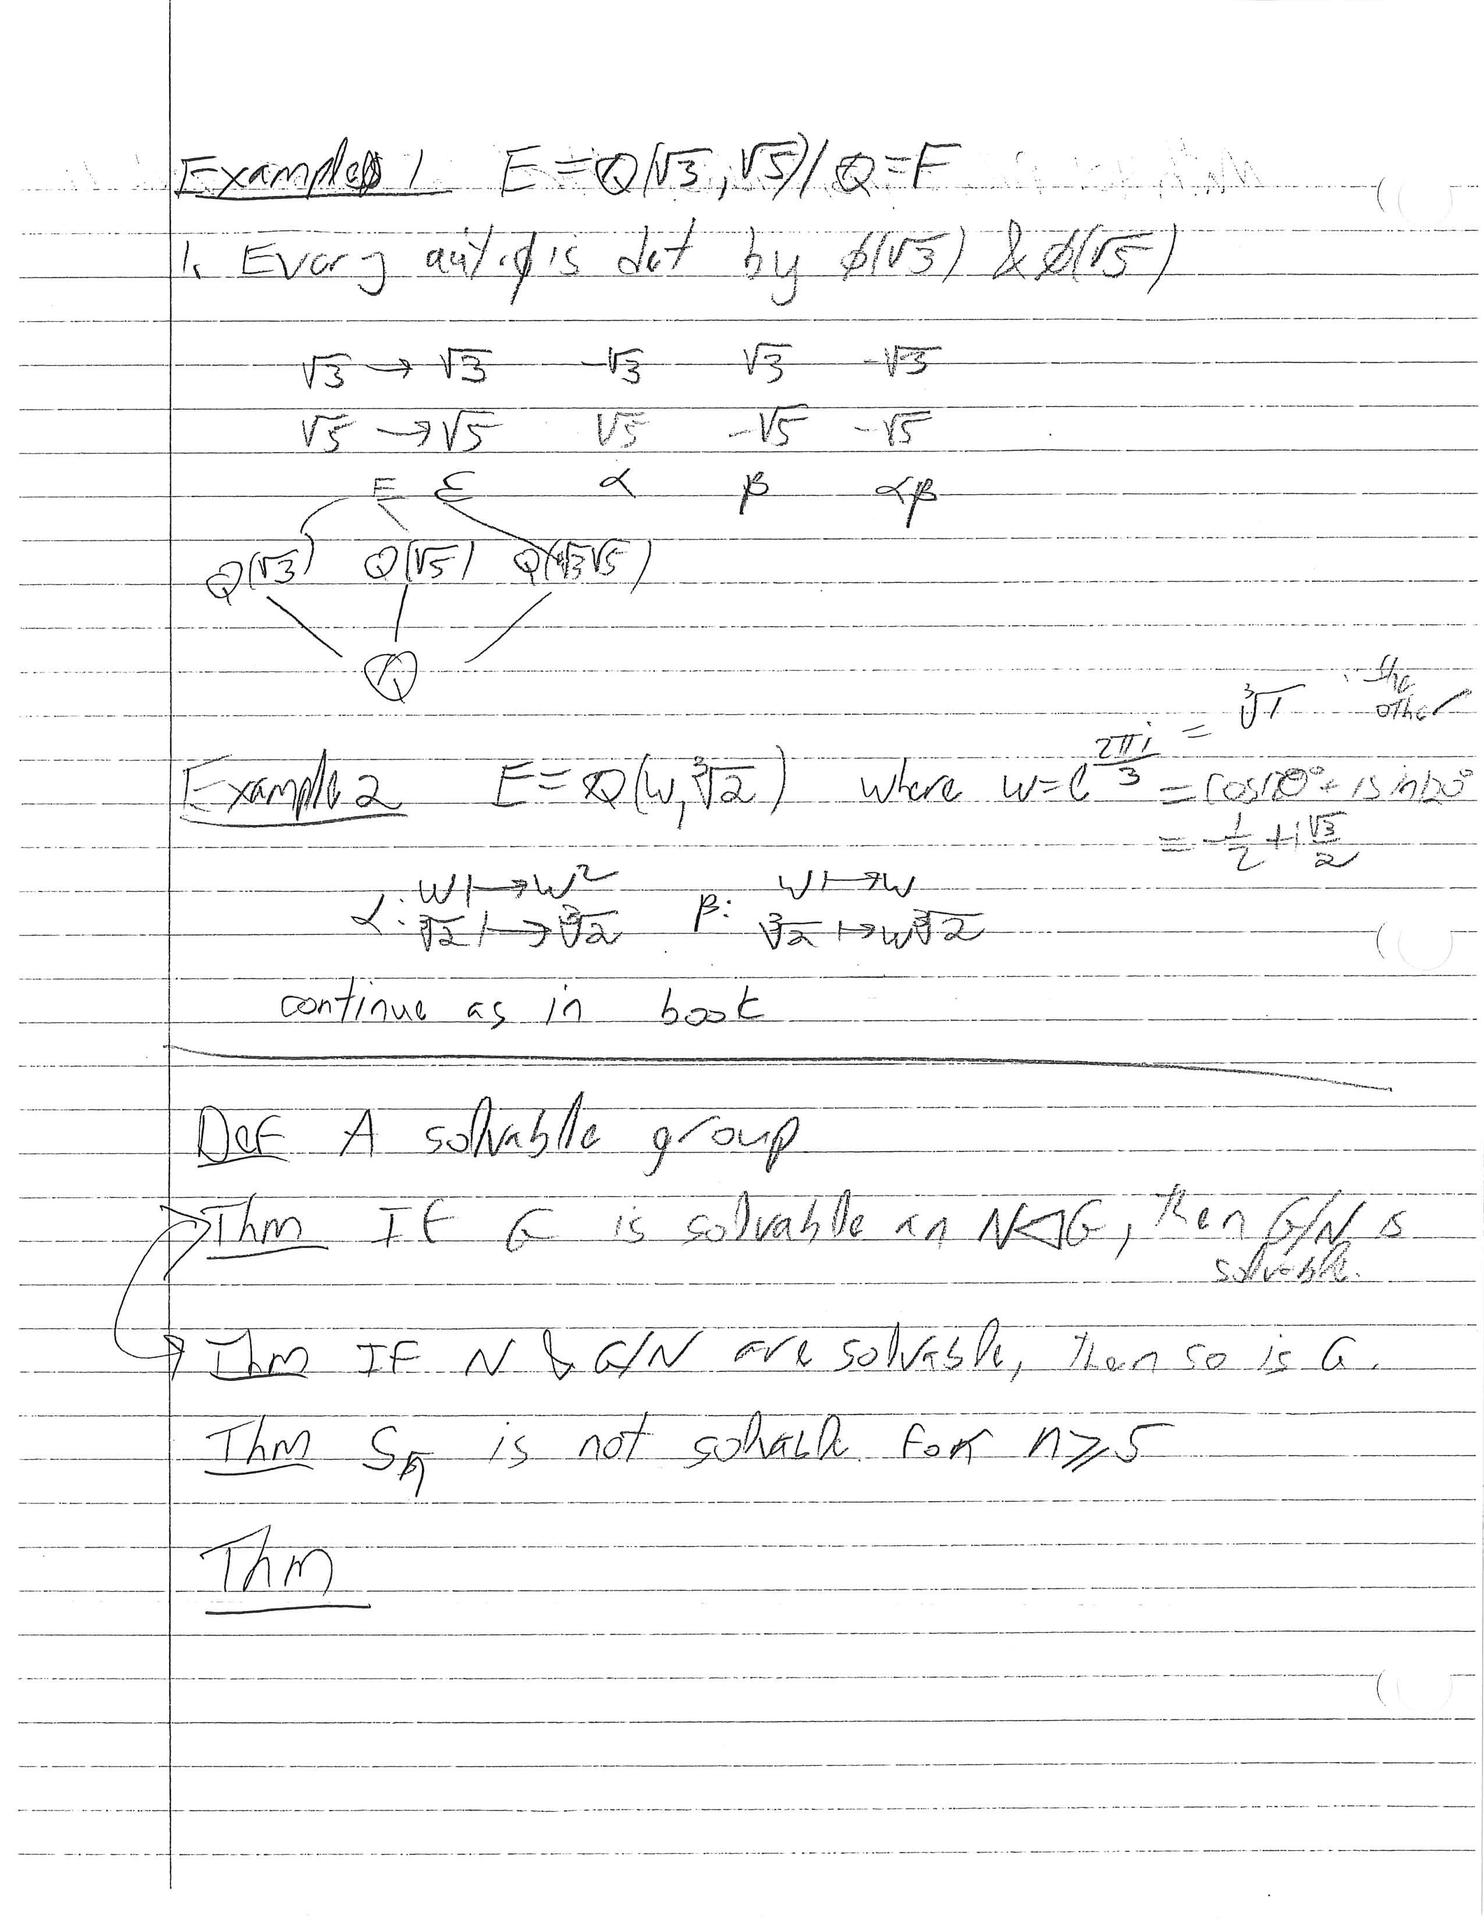 Example 1 E = Q(√3, √5) / Q = F
1. Every aut. φ is det by φ(√3) & φ(√5)
√3 → √3 -√3 √3 -√3
√5 → √5 √5 -√5 -√5
E ε α β αβ
Q(√3) Q(√5) Q(√3√5)
Q
= ∛1 the other
Example 2 E = Q(w, ∛2) where w = e^(2πi/3) = cos120° + i sin120°
= -1/2 + i √3/2
α: w ↦ w² β: w ↦ w
∛2 ↦ ∛2 ∛2 ↦ w∛2
continue as in book
Def A solvable group
Thm If G is solvable an N ◁ G, then G/N is
solvable.
Thm If N & G/N are solvable, then so is G.
Thm Sn is not solvable for n ≥ 5
Thm